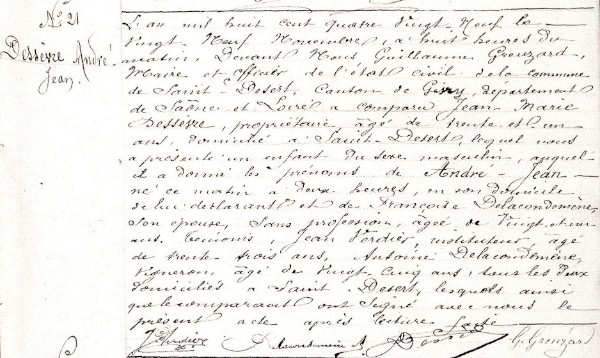 No 21
Dessèvre André
Jean.
L'an mil huit cent quatre vingt Neuf le
Vingt Neuf Novembre, à huit heures du
matin, Devant Nous Guillaume Greuzard,
Maire et Officier de l'état civil de la commune
de Saint-Desert, Canton de Givry, département
de Saône et Loire a comparu Jean Marie
Dessèvre, propriétaire âgé de trente et un
ans, domicilié à Saint-Desert, lequel nous
a présenté un enfant du sexe masculin, auquel
il a donné les prénoms de André-Jean
né ce matin à deux heures, en son domicile
de lui déclarant et de Françoise Delacondemène,
son épouse, sans profession, âgée de Vingt et un
ans. Témoins, Jean Verdier, instituteur, âgé
de trente trois ans, Antoine Delacondemène,
vigneron, âgé de vingt cinq ans, tous les deux
domiciliés à Saint-Desert, lesquels ainsi
que le comparant ont signé avec nous le
présent acte après lecture faite
J. Verdier Delacondemène A. Dessèvre G. Greuzard